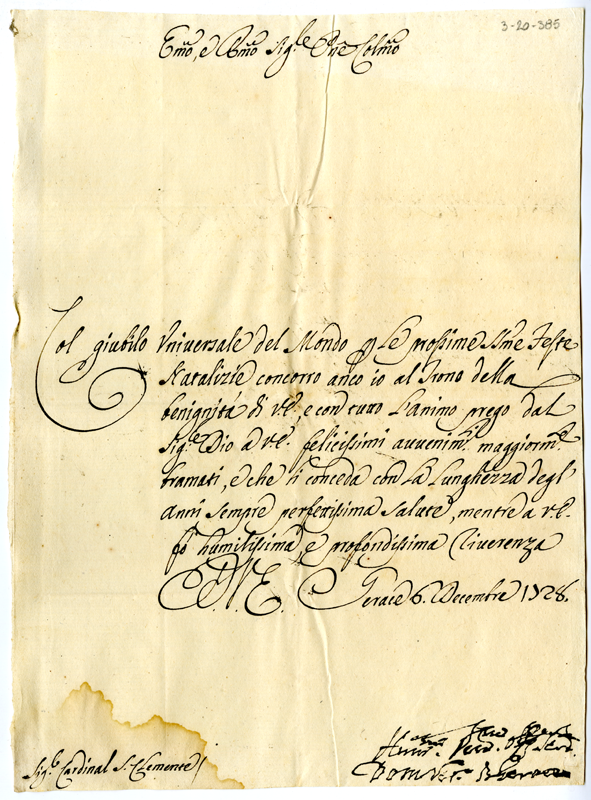 3-20-385
Emo, e Rmo Sig.re Pne Colmo
Col giubilo Vniversale del Mondo p le prossime SSme Feste
Natalizie concorro anco io al Trono della
benignità di V.E., e con tutto l'animo prego dal
Sig.re Dio a V.E. felicissimi avvenim.ti maggiorm.te
bramati, e che li conceda con la lunghezza degl'
anni sempre perfettissima salute, mentre a V.E.
fò humilissima, e profondissima riverenza
D. V. E. Gerace 6. Decembre 1728.
Sig.re Cardinal S. Clemente